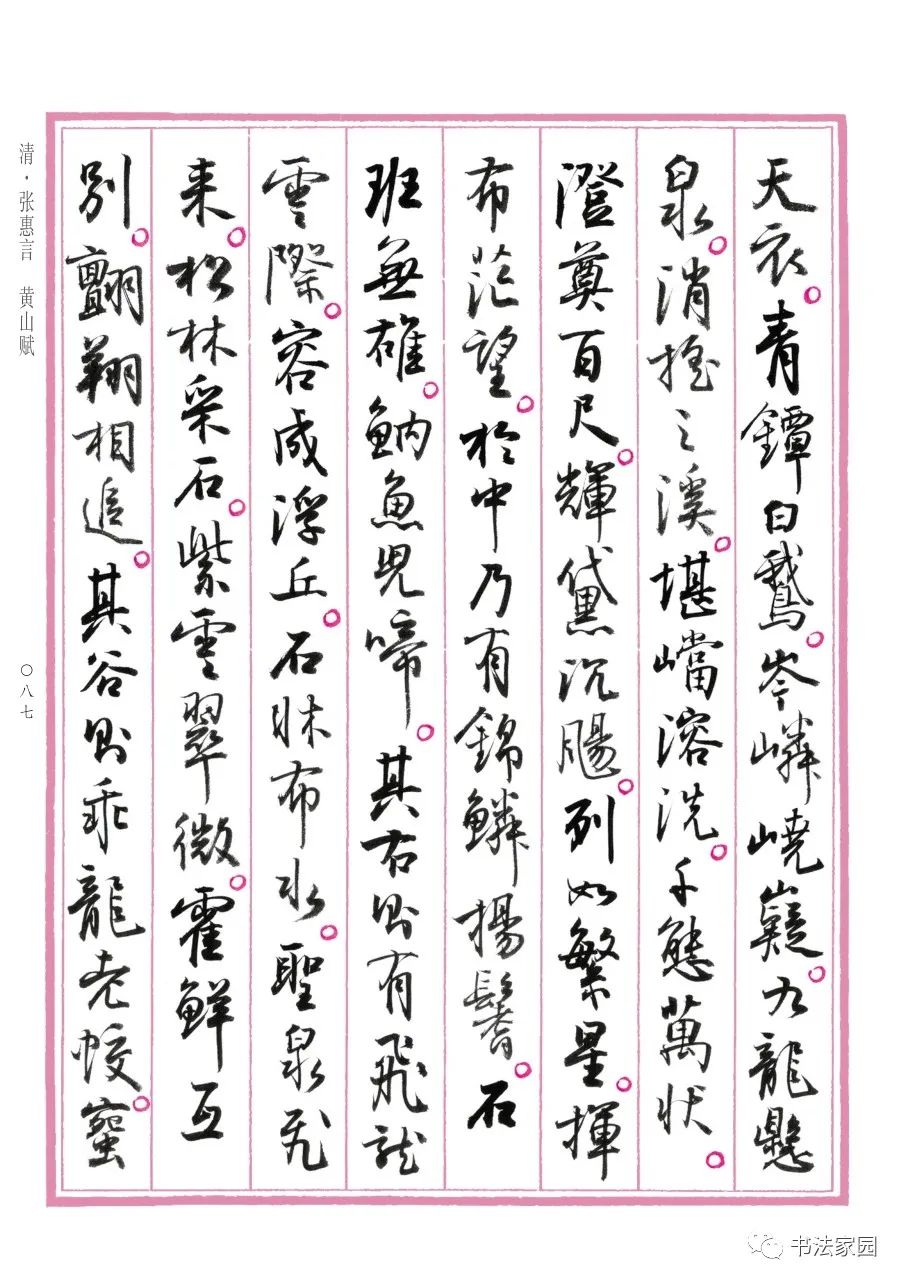 天衣。青鐔白鵝。岑嶙嶢嶷。九龍懸
泉。消搖之溪。堪嵣溶洗。千態萬狀。
澄奠百尺。輝黛沉膓。列如繁星。揮
布茫望。於中乃有錦鱗揚鬐。石
班無雄。魶魚兒啼。其右則有飛龍
雲際。容成浮丘。石牀布水。聖泉
来。松林采石。紫雲翠微。霍鮮互
別。翾翔相追。其谷則乖龍老蛟蛮
清·张惠言 黄山赋
〇八七
书法家园